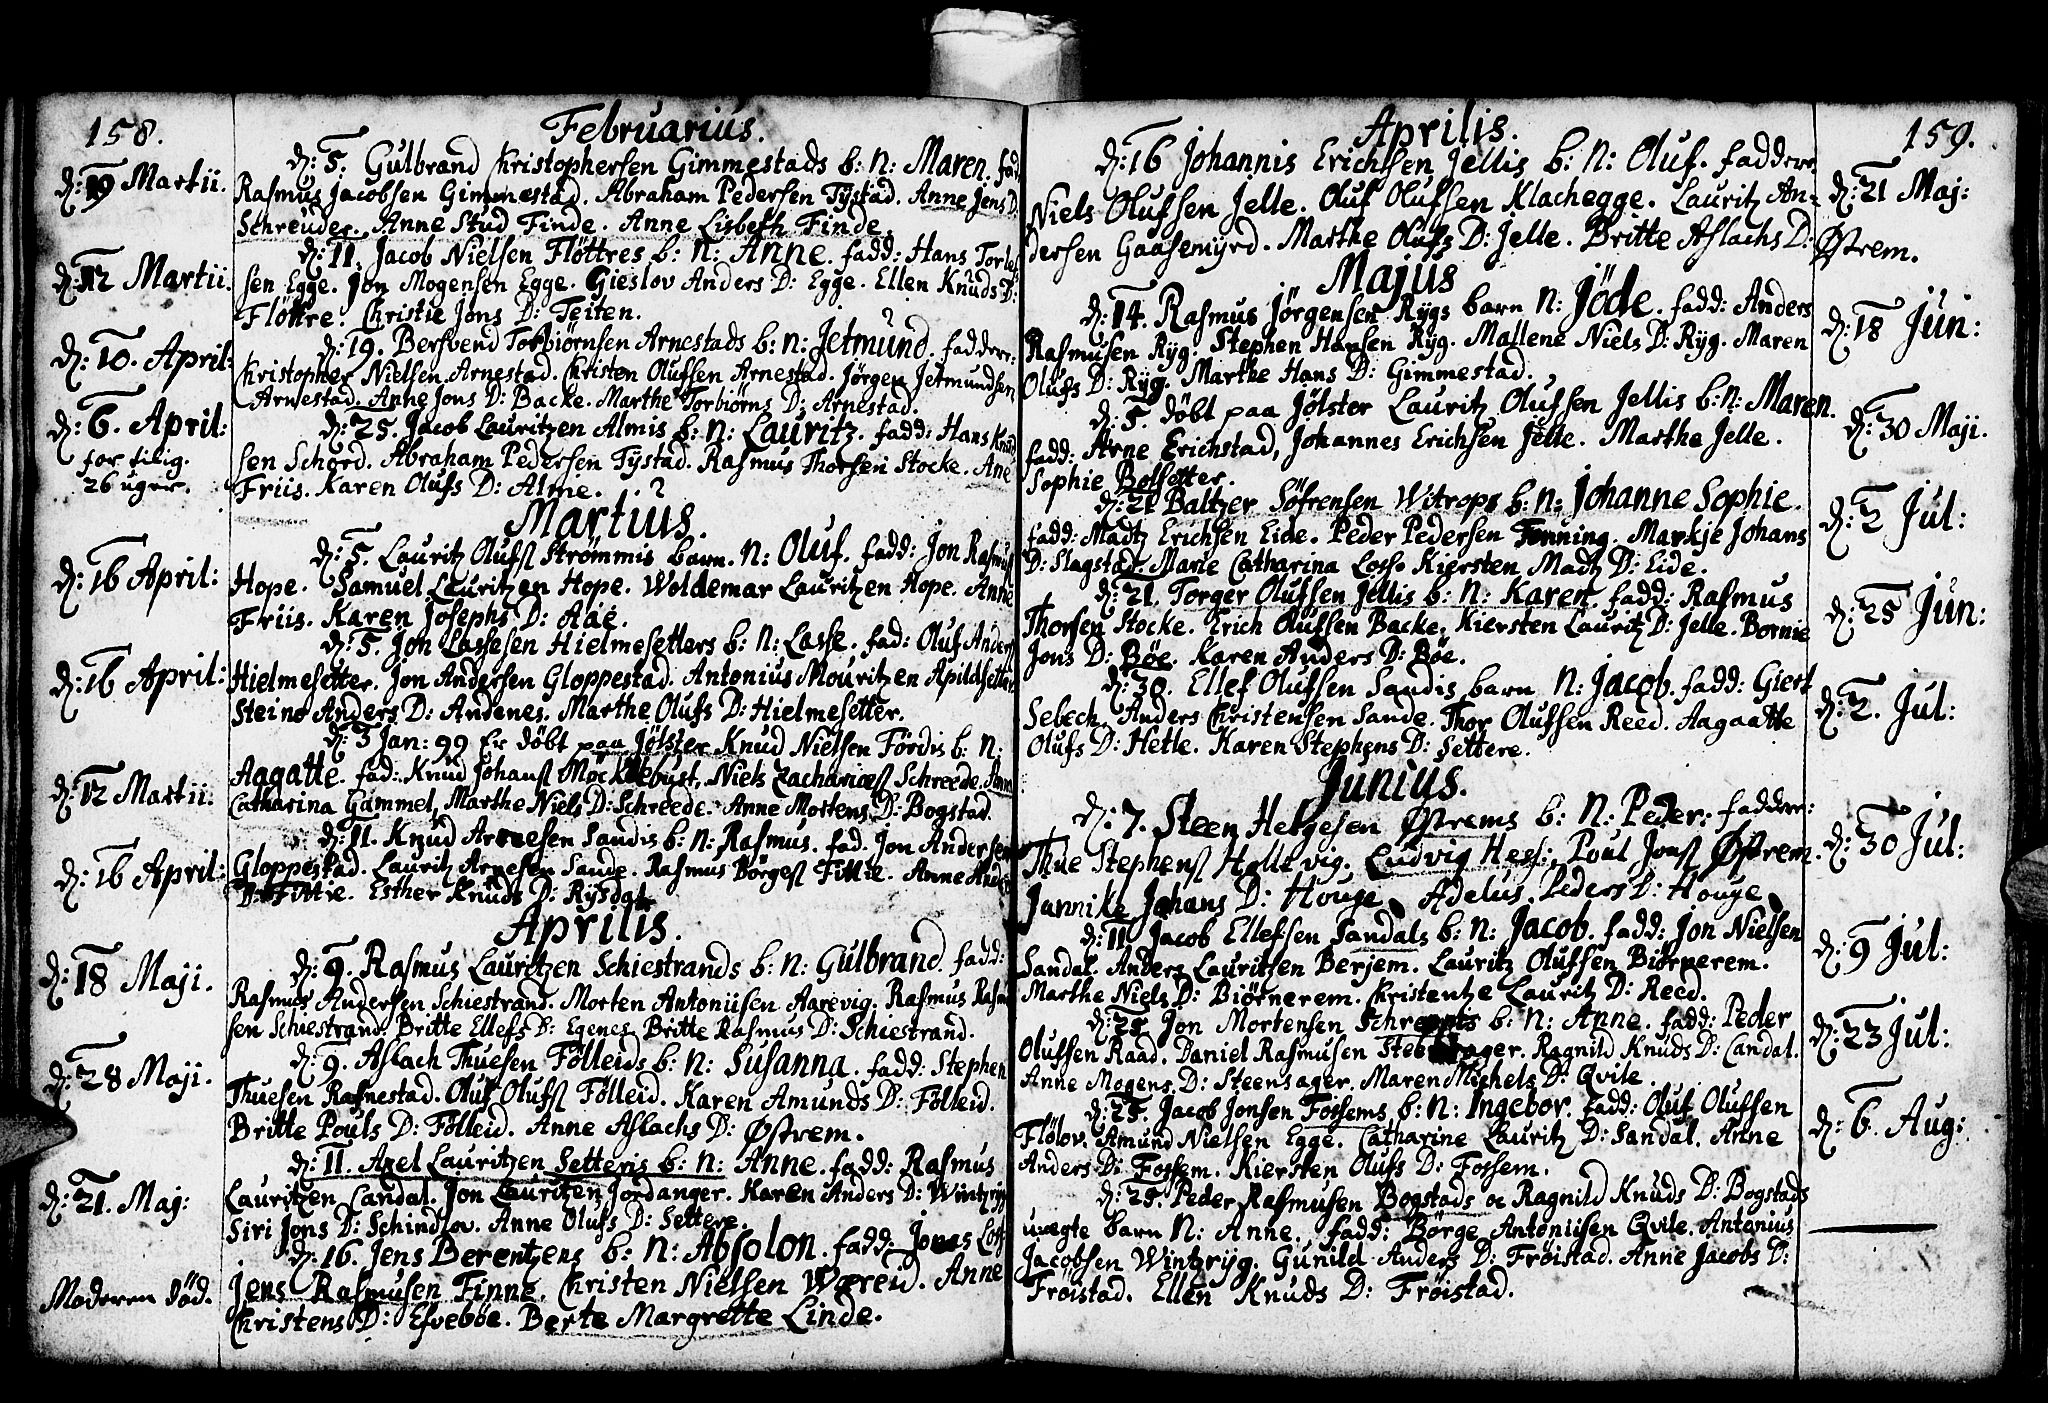 158.
Februarius.
d: 19 Martii.
d: 5. Gulbrand Christophersen Gimmestads b: N: Maren. fad:
Rasmus Jacobsen Gimmestad. Abraham Pedersen Tystad. Anne Jens D:
Schreuder. Anne Stud Finde. Anne Lisbeth Finde.
d: 12 Martii:
d: 11. Jacob Nielsen Fløttres b: N: Anne. fadd: Hans Torlef
sen Egge. Jon Mogensen Egge. Gieslov Anders D: Egge. Ellen Knuds D:
Fløttre. Christie Jons D: Teiten.
d: 10. April:
d: 19. Bersvend Torbiørnsen Arnestads b: N: Jetmund. faddere:
Christopher Nielsen Arnestad. Christen Olufsen Arnestad. Jørgen Jetmundsen
Arnestad. Anne Jons D: Backe. Marthe Torbiørns D: Arnestad.
d: 6. April:
for tilig.
26 uger.
d: 25. Jacob Lauritzen Almis b: N: Lauritz. fadd: Hans Knud
sen Schord. Abraham Pedersen Tystad. Rasmus Thorsen Stocke. Ane
Friis. Karen Olufs D: Alme.
Martius.
d: 16 April:
d: 5. Lauritz Olufs Strømmis barn. N: Oluf. fadd: Jon Rasmus
Hope. Samuel Lauritzen Hope. Woldemar Lauritzen Hope. Anne
Friis. Karen Josephs D: Aae.
d: 16 April:
d: 5. Jon Lassesen Hielmesetters b: N: Lasse. fad: Oluf Anders
Hielmesetter. Jon Andersen Gloppestad. Antonius Mouritzen Apildsetter
Steino Anders D: Andenes. Marthe Olufs D: Hielmesetter.
d: 12 Martii:
d: 3 Jan: 99 Er døbt paa Jølster Knud Nielsen Førdis b: N:
Aagatte. fad: Knud Johans Møcklebust, Niels Zacharies Schreede. Anne
Catharina Gammel, Marthe Niels D: Schreede. Anne Mortens D: Bogstad.
d: 16 April:
d: 11. Knud Arnesen Sandis b: N: Rasmus. fad. Jon Andersen
Gloppestad. Lauritz Arnesen Sande. Rasmus Børges Fittie. Anne Anders
D: Fittie. Esther Knuds D: Rysdal.
Aprilis.
d: 18 Maji.
d: 9. Rasmus Lauritzen Schiestrands b: N: Gulbrand. fadd:
Rasmus Andersen Schiestrand. Morten Antoniisen Aarevig. Rasmus Rasmu
sen Schiestrand. Britte Ellefs D: Egenes. Britte Rasmus D: Schiestrand.
d: 28 Maji.
d: 9. Aslach Thuesen Følleids b: N: Susanna. fadd: Stephen
Thuesen Rasnestad. Oluf Olufs Følleid. Karen Amunds D: Følleid.
Britte Pouls D: Følleid. Anne Aslachs D: Østrem.
d: 21. Maj:
d: 11. Axel Lauritzen Setteris b: N: Anne. fadd: Rasmus
Lauritzen Candal. Jon Lauritzen Jordanger. Karen Anders D: Wintzryg
Siri Jons D: Schindlov. Anne Olufs D: Settere.
Moderen død.
d: 16. Jens Berentzens b: N: Absolon. fadd: Jonas
Jens Rasmusen Finne. Christen Nielsen Wereid. Anne
Christens D: Efvebøe. Berte Margrette Linde.
159.
Aprilis.
d: 16 Johannis Erichsen Jellis b: N: Oluf. faddere.
d: 21 Maj:
Niels Olufsen Jelle. Oluf Olufsen Klachegge. Lauritz An-
dersen Gaasemyrd. Marthe Olufs D: Jelle. Britte Aslachs D: Østrem.
Majus
d: 14. Rasmus Jørgensen Rygs barn N: Jøde. fadd: Anders
d: 18 Jun:
Rasmusen Ryg. Stephen Hansen Ryg. Mallene Niels D: Ryg. Maren
Olufs D: Ryg. Marthe Hans D: Gimmestad.
d: 5. døbt paa Jølster Lauritz Olufsen Jellis b: N: Maren.
d: 30 Maji.
fadd: Arne Erichstad, Johannes Erichsen Jelle. Marthe Jelle.
Sophie Bolsetter.
d: 21 Baltzer Søfrensen Witrops b: N: Johanne Sophie.
d: 2 Jul:
fadd: Madtz Erichsen Eide. Peder Pedersen Tenning. Markje Johans
D: Slagstad. Marie Catharina Loss. Kiersten Madtz D: Eide.
d: 21. Torger Olufsen Jellis b: N: Karen. fadd: Rasmus
d: 25 Jun:
Thorsen Stocke. Erich Olufsen Backe. Kiersten Lauritz D: Jelle. Bornie
Jons D: Bøe. Karen Anders D: Bøe.
d: 30. Ellef Olufsen Sandis barn N: Jacob. fadd: Giert
d: 2. Jul:
Sebech. Anders Christensen Sande. Thor Olufsen Reed. Aagaatte
Olufs D: Hetle. Karen Stephens D: Settere.
Junius.
d: 7. Steen Helgesen Østrems b: N: Peder. faddere:
d: 30 Jul:
Thue Stephens Holtevig. Ludvig Hess: Poul Jons Østrem.
Jannike Johans D: Houge. Adelus Peders D: Houge
d: 11 Jacob Ellefsen Sandals b: N: Jacob. fadd: Jon Nielsen
d: 9 Jul:
Sandal. Anders Lauritzen Berjem. Lauritz Olufsen Biørnerem.
Marthe Niels D: Biørnerem. Christentze Lauritz D: Reed.
d: 25 Jon Mortensen Schreppis b: N: Anne. fadd: Peder
d: 23 Jul:
Olufsen Raad. Daniel Rasmusen Steensager. Ragnild Knuds D: Candal.
Anne Mogens D: Steensager. Maren Michels D: Qvile.
d: 25. Jacob Jonsen Fossems b: N: Ingebor. fadd: Oluf Olufsen
d: 6 Aug:
Flølov. Amund Nielsen Egge. Catharine Lauritz D: Sandal. Anne
Anders D: Fossem. Kiersten Olufs D: Fossem.
d: 25. Peder Rasmusen Bogstads oc Ragnild Knuds D: Bogstads
uægte barn N: Anne. fadd: Børge Antoniisen Qvile. Antonius
Jacobsen Wintzryg. Gunild Anders D: Frøistad. Anne Jacobs D:
Frøistad. Ellen Knuds D: Frøistad.